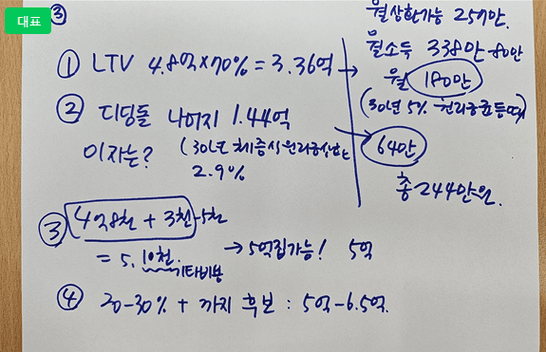 대표
③
① LTV 4.8억×70% = 3.36억 →
② 디딤돌 나머지 1.44억
이자는? (30년 체증식원리금상환
2.9%
③ 4억8천 + 3천~5천
= 5.10천 → 5억집가능! 5억
기타비용
④ 20-30% + 까지 후보 : 5억-6.5억.
월상환가능 257만.
월소득 338만 80만
월 180만
(30년 5% 원리금균등때)
64만
총 244만원.